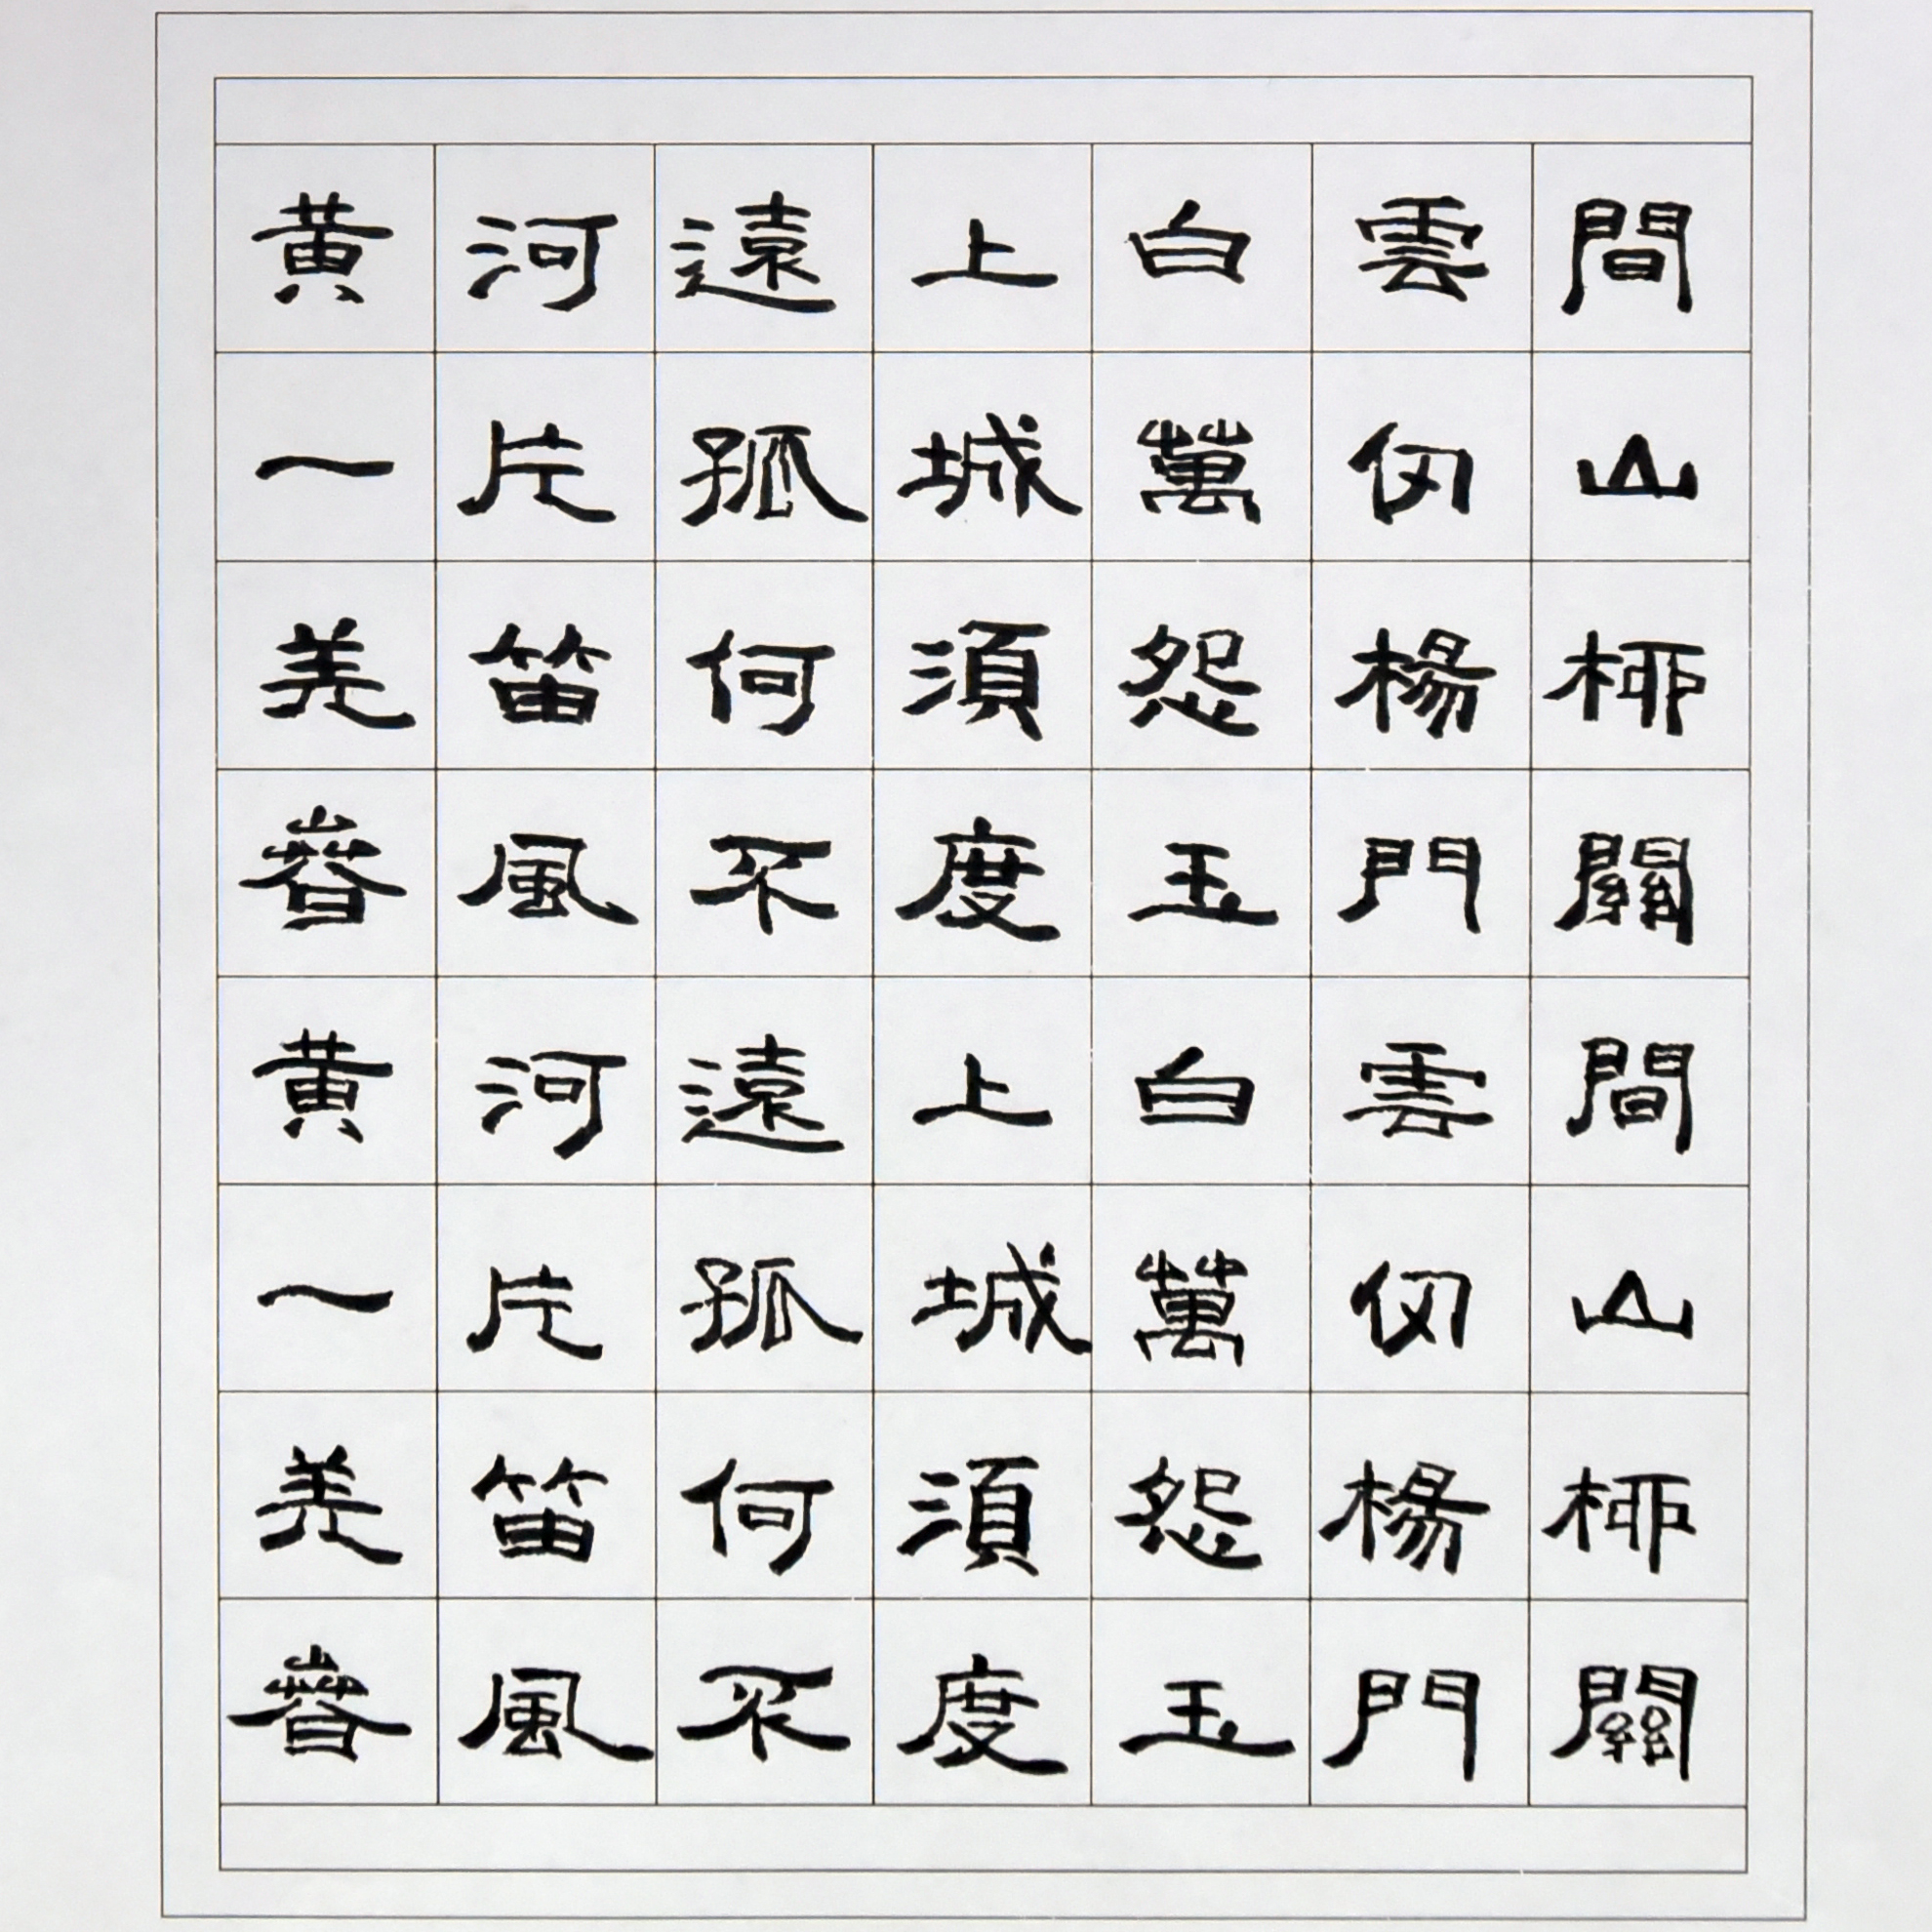 黄河遠上白雲間
一片孤城萬仞山
羌笛何須怨楊柳
春風不度玉門關
黄河遠上白雲間
一片孤城萬仞山
羌笛何須怨楊柳
春風不度玉門關